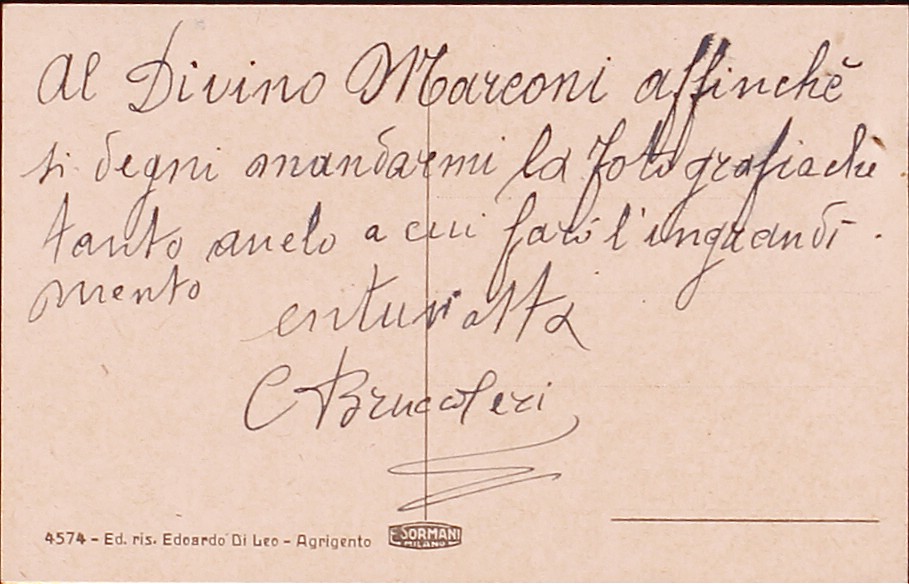 Al Divino Marconi affinchè
si degni mandarmi la fotografia che
tanto anelo a cui farò l'ingrandi-
mento
C Bruccoleri
4574 - Ed. ris. Edoardo Di Leo - Agrigento
F. SORMANI
MILANO